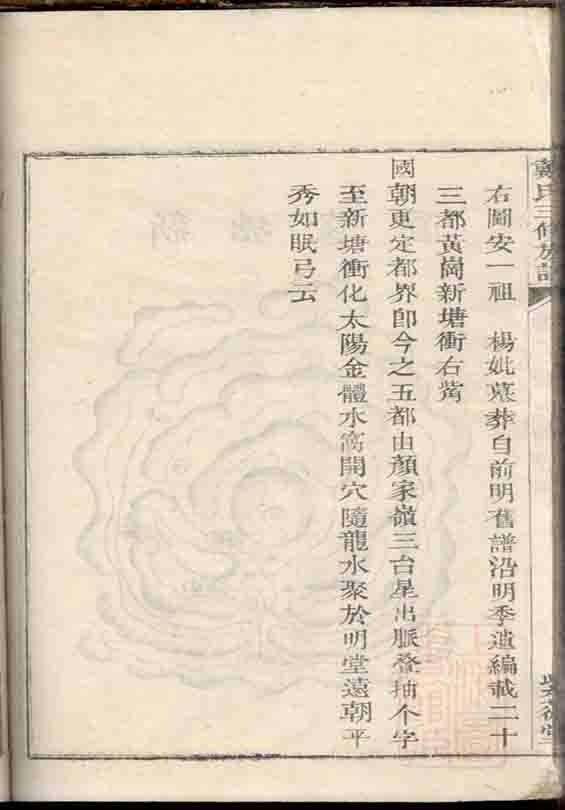 戴氏三修族譜
右圖安一祖 楊妣墓葬自前明舊譜沿明季遺編載二十
三都黃崗新塘衝右觜
國朝更定都界卽今之五都由顏家嶺三台星出脈叠抽个字
至新塘衝化太陽金體水窩開穴隨龍水聚於明堂遠朝平
秀如眠弓云